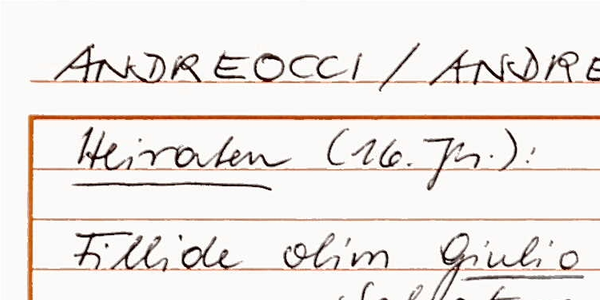 ANDREOCCI / ANDRE
Heiraten (16. Jh.):
Fillide olim Giulio